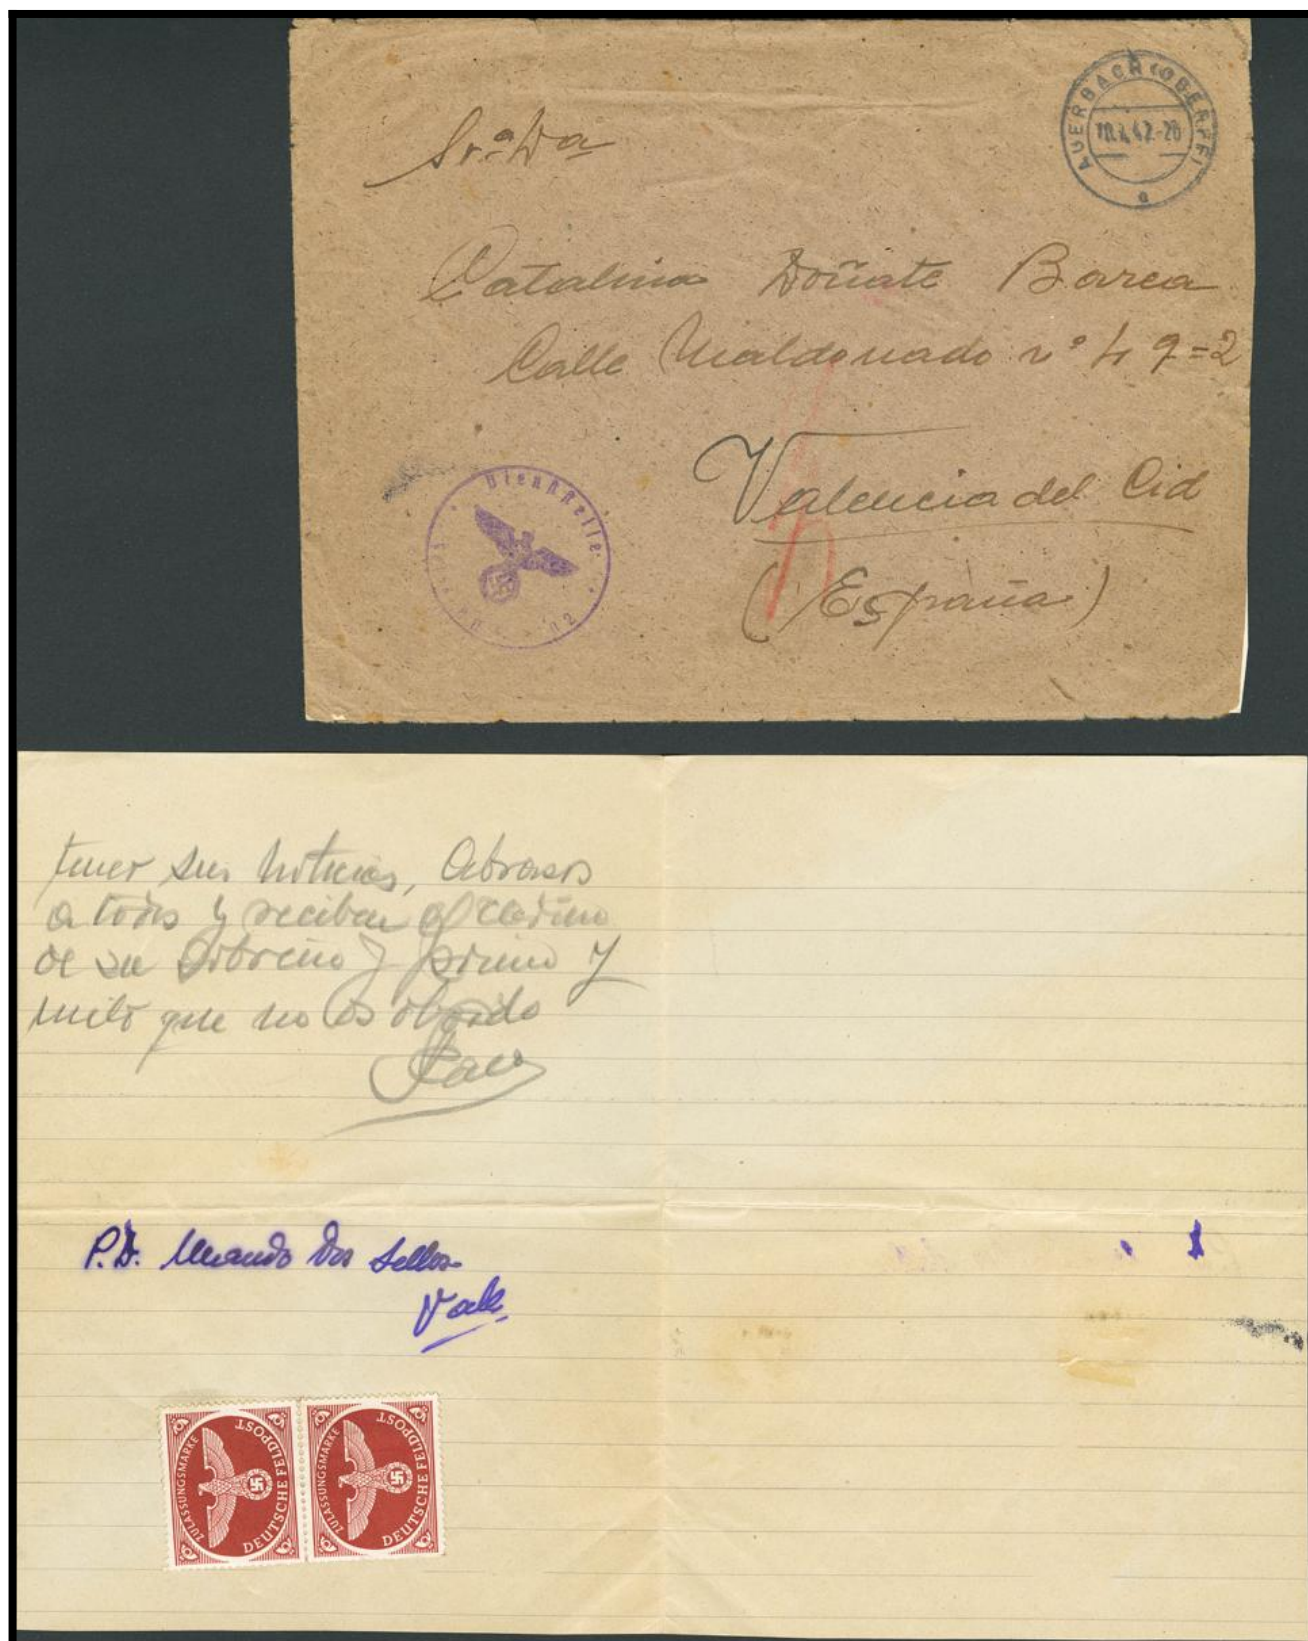 AUERBACH (OBERPF)
Sr.ª Dª
Catalina Doñate Barea
Calle Maldonado nº 49=2
Valencia del Cid
(España)
Dienststelle
tener sus noticias, Abrazos
a todos y reciban el
de su Sobrino y primo y
que no os olvida
P.D. Mando dos sellos
Valle
ZULASSUNGSMARKE
DEUTSCHE FELDPOST
ZULASSUNGSMARKE
DEUTSCHE FELDPOST